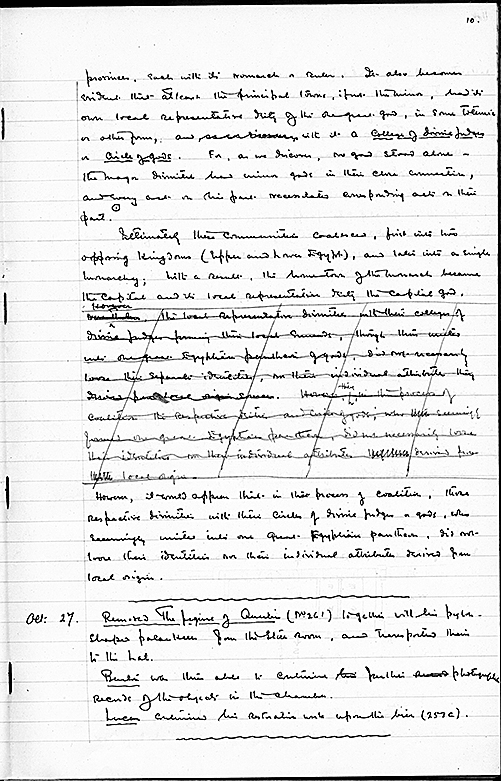 10.
provinces, each with its monarch or ruler. It also becomes
evident that at least the principal towns, if not the minor, had its
own local representative deity of the one great god, in some totemic
or other form, and with it a College of divine judges
or Circle of gods. For, as we discern, no god stood alone –
the major divinities had minor gods in their close connection,
and every act on their part necessitates corresponding acts on their
part.
Ultimately these communities coalesced, first into two
opposing kingdoms (Upper and Lower Egypt), and later into a single
monarchy; with a result, the home town of the monarch became
the capital and its local representative deity the capital god.
However
the local representative divinities with their colleges of
divine judges forming their local Ennead, though their unites
into one great Egyptian pantheon of gods, did not necessarily
loose their separate identities, nor their individual attributes they
derive from local origin. However, in the process of
coalition the respective deities and circles of gods, who seemingly
formed one great Egyptian pantheon, did not necessarily loose
their identities nor their individual attributes derived from
local origin.
However, it would appear that in this process of coalition, these
respective divinities with their Circles of divine judges or gods, who
seemingly unites into one great Egyptian pantheon, did not
loose their identities nor their individual attributes derived from
local origin.
Oct: 27. Removed The figure of Anubis (No 261) together with his pylon-
shaped palanquin from the Store room, and transported them
to the Lab.
Burton was thus able to continue further photographic
records of the objects in the chamber.
Lucas continued his restoration work upon the bier (253c).